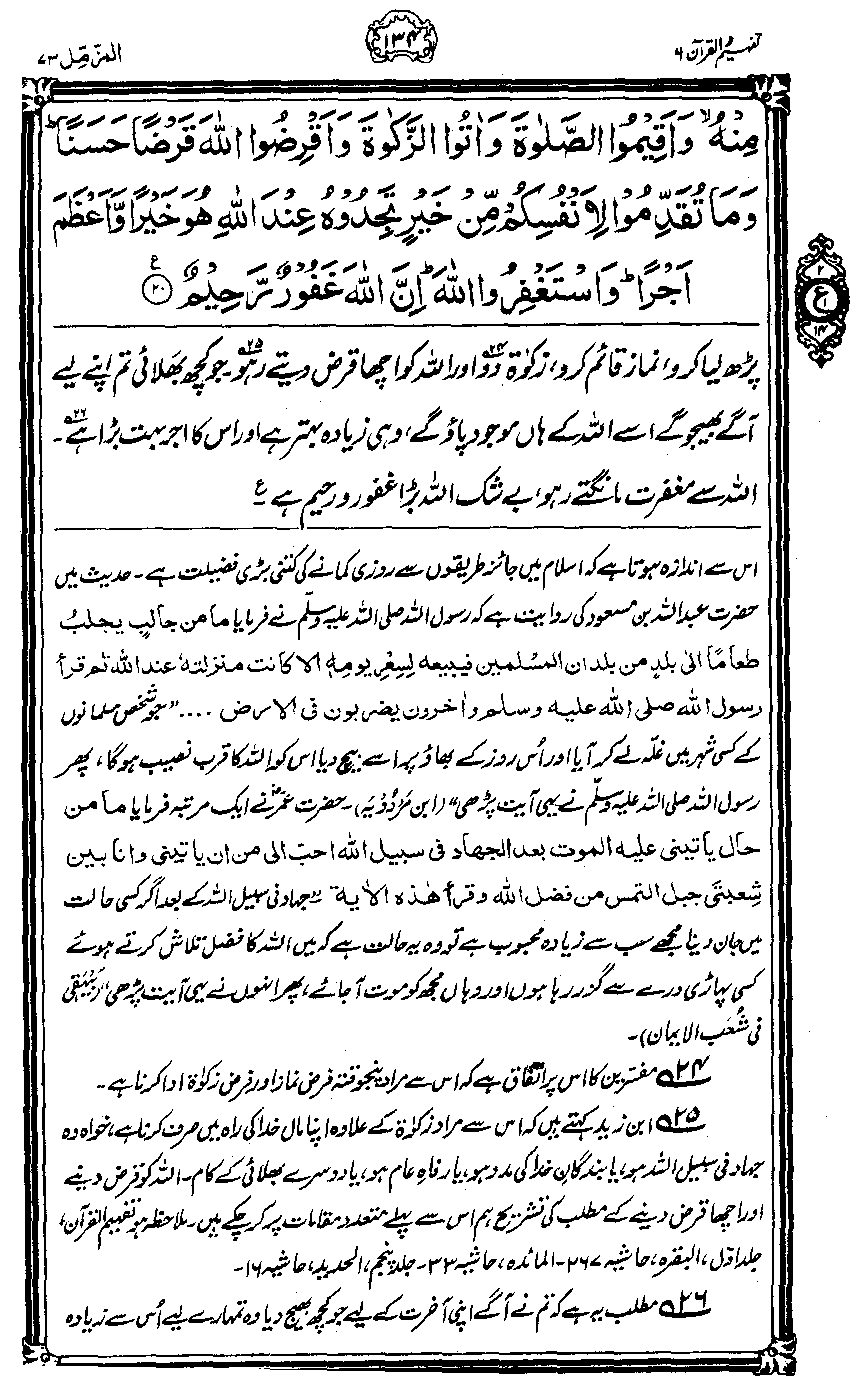 تفہیم القرآن ۶
۱۳۴
المزّمّل ۷۳
مِنْهُ ۙ وَاَقِيْمُوا الصَّلٰوةَ وَاٰتُوا الزَّكٰوةَ وَاَقْرِضُوا اللّٰهَ قَرْضًا حَسَنًا ؕ
وَمَا تُقَدِّمُوْا لِاَنْفُسِكُمْ مِّنْ خَيْرٍ تَجِدُوْهُ عِنْدَ اللّٰهِ هُوَ خَيْرًا وَّاَعْظَمَ
اَجْرًا ؕ وَاسْتَغْفِرُوا اللّٰهَ ؕ اِنَّ اللّٰهَ غَفُوْرٌ رَّحِيْمٌ ۟ ۲۰ ع
۲
ع
۱۴
پڑھ لیا کرو، نماز قائم کرو، زکوٰۃ دو۲۴ اور اللہ کو اچھا قرض دیتے رہو۲۵۔ جو کچھ بھلائی تم اپنے لیے
آگے بھیجو گے اسے اللہ کے ہاں موجود پاؤ گے، وہی زیادہ بہتر ہے اور اس کا اجر بہت بڑا ہے۲۶۔
اللہ سے مغفرت مانگتے رہو، بے شک اللہ بڑا غفور و رحیم ہے ع
اس سے اندازہ ہوتا ہے کہ اسلام میں جائز طریقوں سے روزی کمانے کی کتنی بڑی فضیلت ہے۔ حدیث میں
حضرت عبداللہ بن مسعود کی روایت ہے کہ رسول اللہ صلی اللہ علیہ وسلّم نے فرمایا ما من جالبٍ یجلبُ
طعامًا الیٰ بلدٍ من بلدان المسلمین فیبیعہ لِسِعْرِ یومِہٖ الا کانت منزلتہٗ عند اللہ ثم قرأ
رسول اللہ صلی اللہ علیہ وسلم واٰخرون یضربون فی الارض .... "جو شخص مسلمانوں
کے کسی شہر میں غلّہ لے کر آیا اور اُس روز کے بھاؤ پر اسے بیچ دیا اس کو اللہ کا قرب نصیب ہوگا، پھر
رسول اللہ صلی اللہ علیہ وسلّم نے یہی آیت پڑھی" (ابن مَرْدُوْیَہ)۔ حضرت عمرؓ نے ایک مرتبہ فرمایا ما من
حال یاتینی علیہ الموت بعد الجھاد فی سبیل اللہ احبّ الی من ان یاتینی وانا بین
شِعبتَی جبل التمس من فضل اللہ وقرأ ھٰذہ الاٰیة "جہاد فی سبیل اللہ کے بعد اگر کسی حالت
میں جان دینا مجھے سب سے زیادہ محبوب ہے تو وہ یہ حالت ہے کہ میں اللہ کا فضل تلاش کرتے ہوئے
کسی پہاڑی درے سے گزر رہا ہوں اور وہاں مجھ کو موت آجائے، پھر انہوں نے یہی آیت پڑھی" (بَیْہَقی
فی شُعَب الایمان)۔
۲۴ مفسّرین کا اس پر اتّفاق ہے کہ اس سے مراد پنجوقتہ فرض نماز اور فرض زکوٰۃ ادا کرنا ہے۔
۲۵ ابن زید کہتے ہیں کہ اس سے مراد زکوٰۃ کے علاوہ اپنا مال خدا کی راہ میں صرف کرنا ہے، خواہ وہ
جہاد فی سبیل اللہ ہو، یا بندگانِ خدا کی مدد ہو، یا رفاہِ عام ہو، یا دوسرے بھلائی کے کام۔ اللہ کو قرض دینے
اور اچھا قرض دینے کے مطلب کی تشریح ہم اس سے پہلے متعدد مقامات پر کر چکے ہیں۔ ملاحظہ ہو تفہیم القرآن،
جلد اوّل، البقرہ، حاشیہ ۲۶۷۔ المائدہ، حاشیہ ۳۳۔ جلد پنجم، الحدید، حاشیہ ۱۶۔
۲۶ مطلب یہ ہے کہ تم نے آگے اپنی آخرت کے لیے جو کچھ بھیج دیا وہ تمہارے لیے اُس سے زیادہ